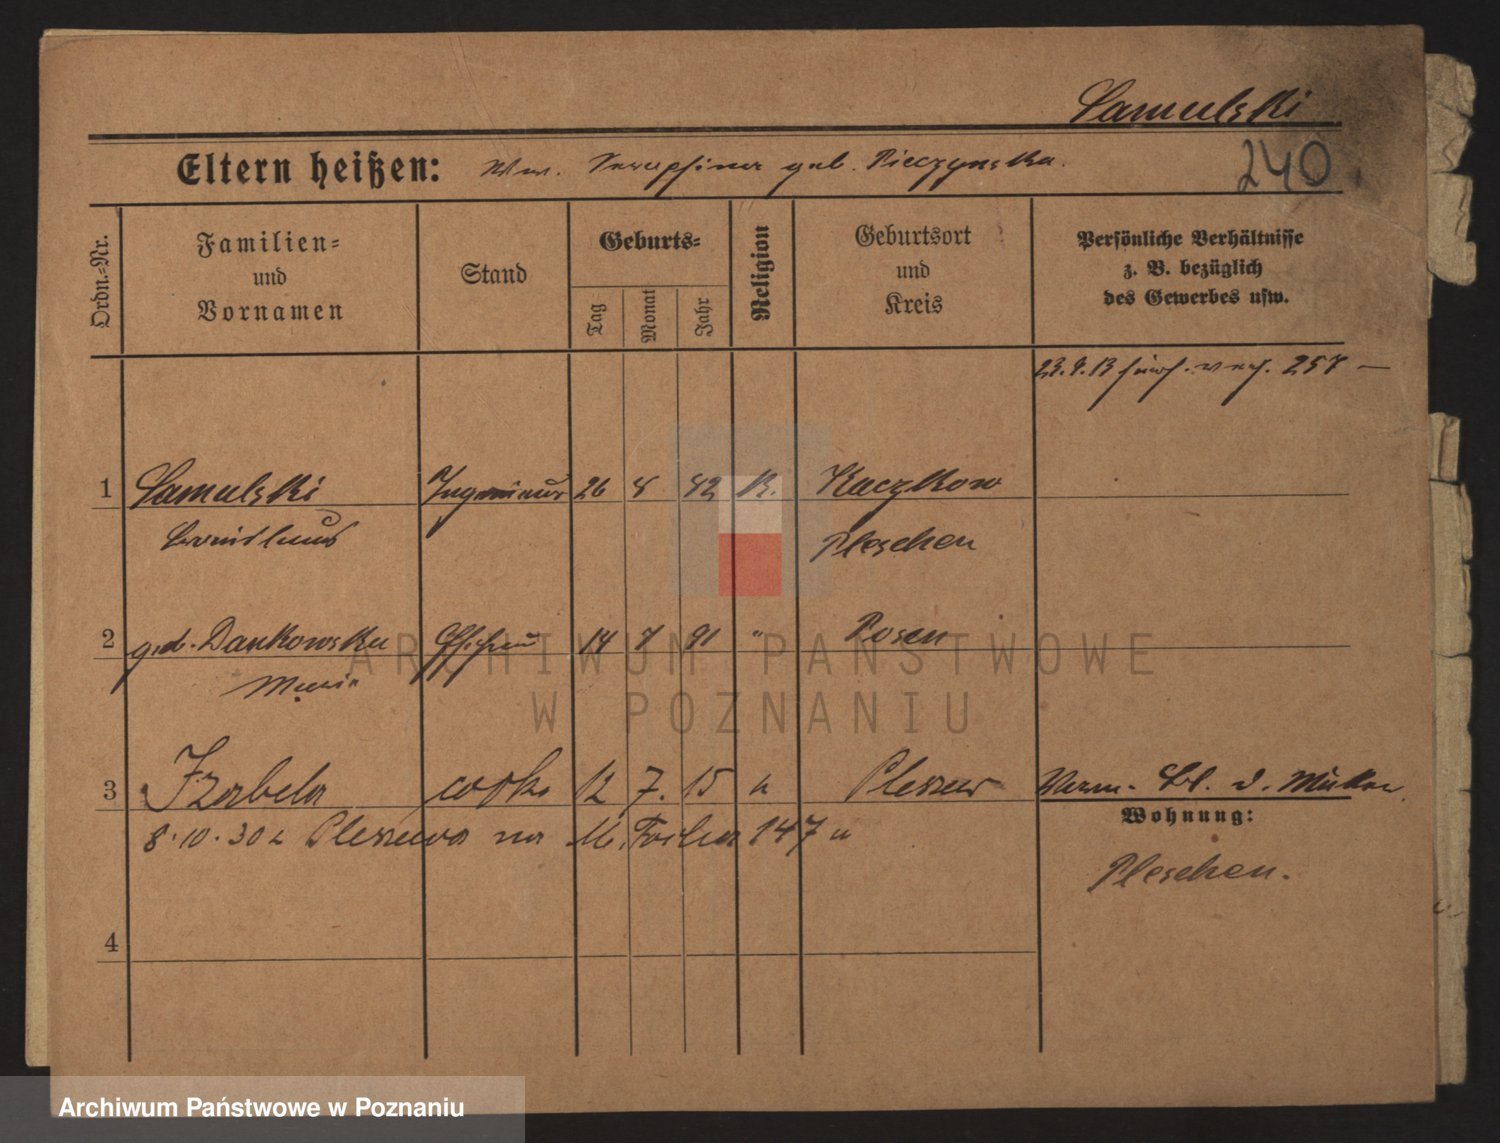 Samulski
Eltern heißen: Ww. Seraphina geb. Pieczynska.
240
Ordn.-Nr.
Familien- und Vornamen
Stand
Geburts-
Tag
Monat
Jahr
Religion
Geburtsort und Kreis
Persönliche Verhältnisse z. B. bezüglich des Gewerbes usw.
257 —
1 Samulski Ingenieur 26 8 82 K. Kaczkow
Pleschen
2 geb. Dankowska Ehefrau 14 7 91 " Posen
Maria
3 Izabela córka 12 7. 15 " Pleszew
8.10.30 z Pleszewa na M. Focha 147
Wohnung:
Pleschen.
4
ARCHIWUM PAŃSTWOWE
W POZNANIU
Archiwum Państwowe w Poznaniu